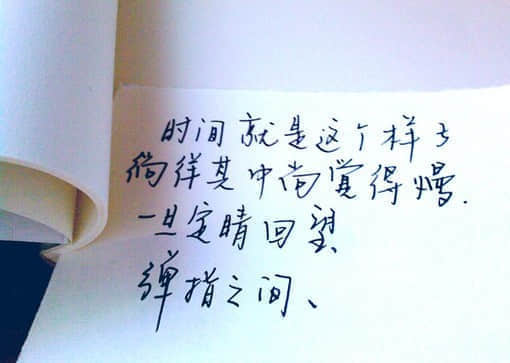 时间就是这个样子
徜徉其中尚觉得慢.
一旦定睛回望、
弹指之间、